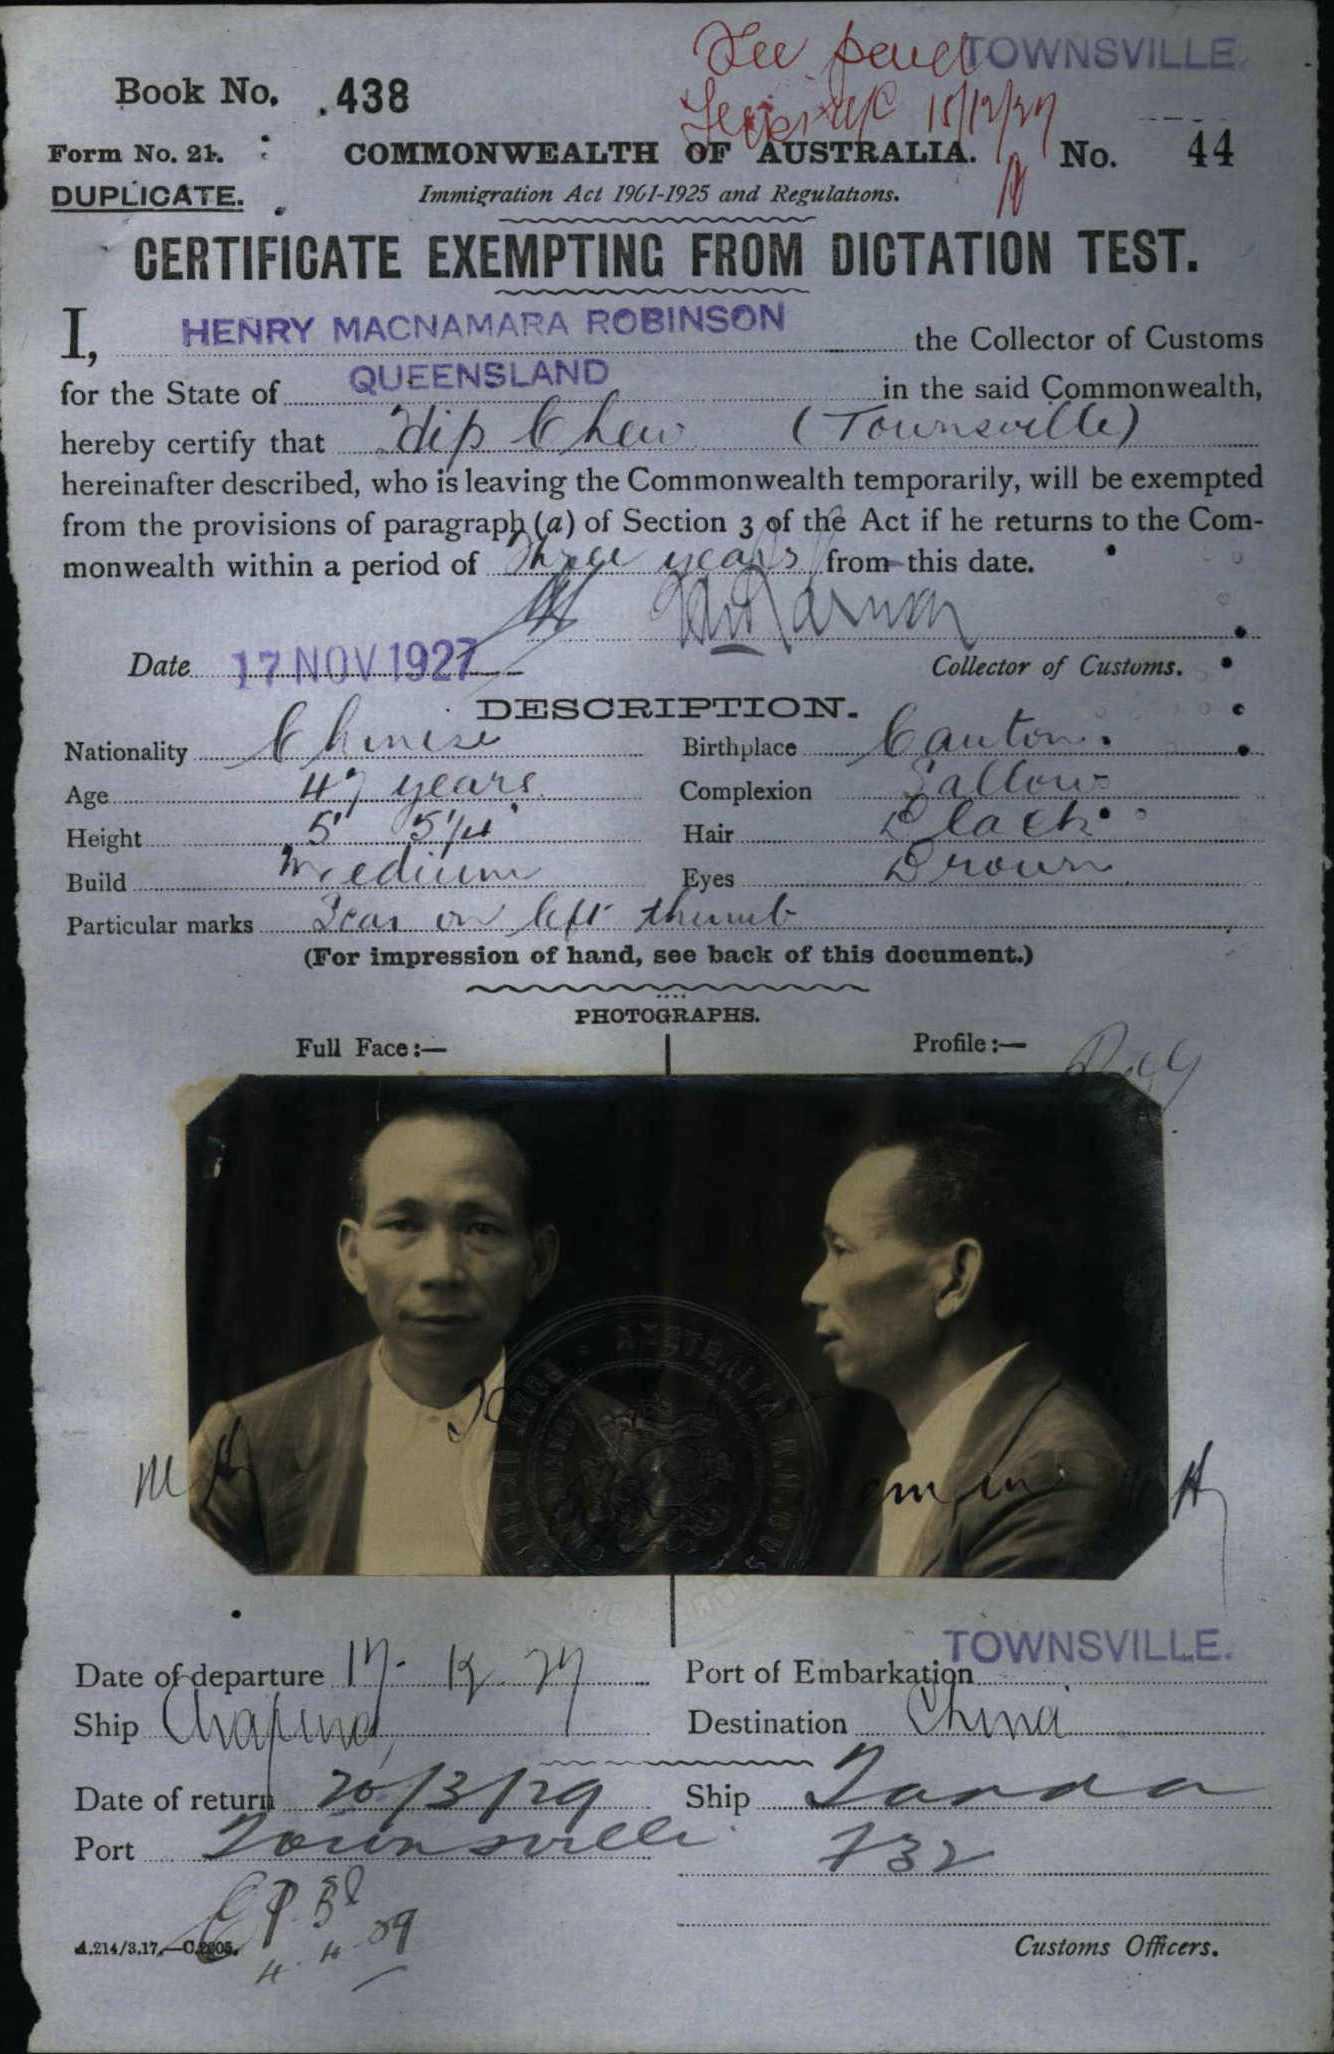 TOWNSVILLE.
Book No. 438
15/12/27
Form No. 21. COMMONWEALTH OF AUSTRALIA. No. 44
DUPLICATE. Immigration Act 1901-1925 and Regulations.
CERTIFICATE EXEMPTING FROM DICTATION TEST.
I, HENRY MACNAMARA ROBINSON the Collector of Customs
for the State of QUEENSLAND in the said Commonwealth,
hereby certify that Hip Chew (Townsville)
hereinafter described, who is leaving the Commonwealth temporarily, will be exempted
from the provisions of paragraph (a) of Section 3 of the Act if he returns to the Com-
monwealth within a period of Three years from this date.
Date 17 NOV 1927 Collector of Customs.
DESCRIPTION.
Nationality Chinese Birthplace Canton.
Age 47 years Complexion Sallow
Height 5' 5¼" Hair Black
Build Medium Eyes Brown
Particular marks Scar on left thumb
(For impression of hand, see back of this document.)
PHOTOGRAPHS.
Full Face:— Profile:—
AUSTRALIA
Date of departure 17. 12. 27 Port of Embarkation TOWNSVILLE.
Ship Destination China
Date of return 20/3/29 Ship Tanda
Port Townsville 732
4. 4. 29
A.214/3.17.—C.2605. Customs Officers.